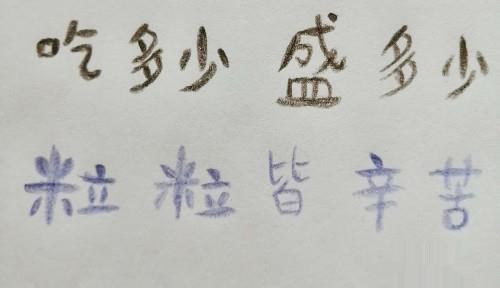 吃多少 盛多少
粒粒皆辛苦